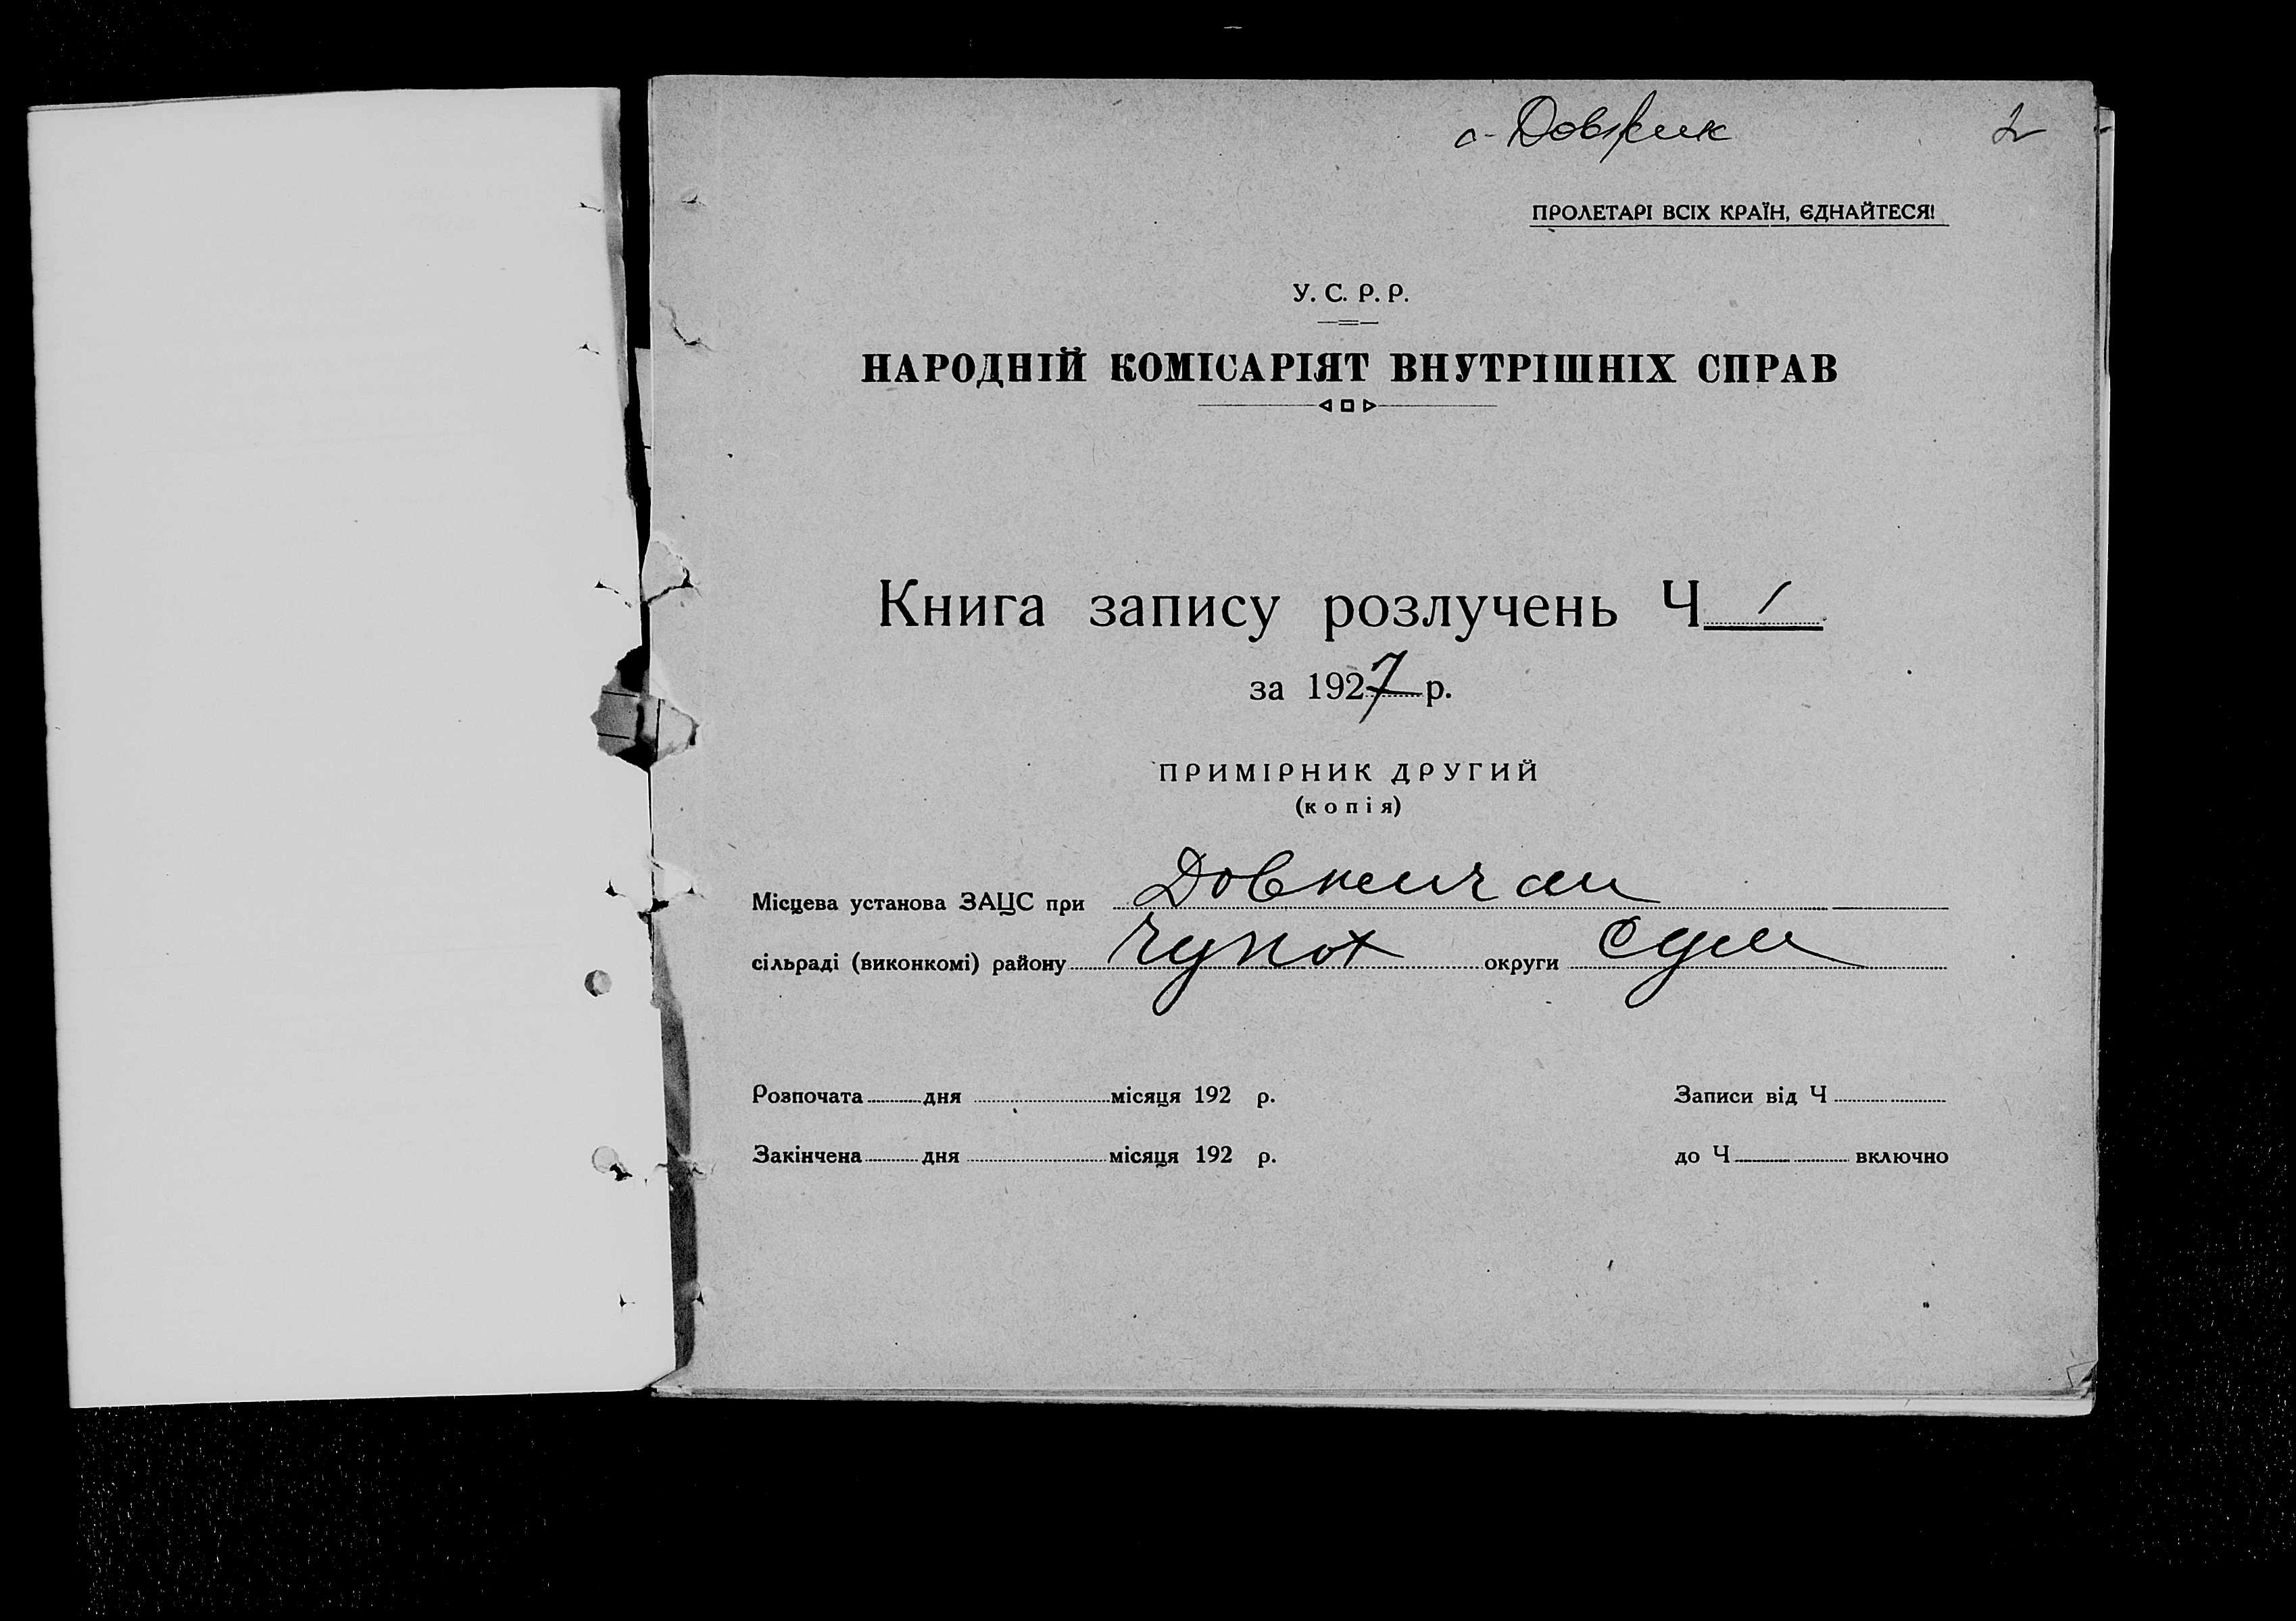 с. Довжик
2
ПРОЛЕТАРІ ВСІХ КРАЇН, ЄДНАЙТЕСЯ!
У. С. Р. Р.
НАРОДНІЙ КОМІСАРІЯТ ВНУТРІШНІХ СПРАВ
Книга запису розлучень Ч 1
за 1927 р.
ПРИМІРНИК ДРУГИЙ
(копія)
Місцева установа ЗАЦС при
сільраді (виконкомі) району округи Сум
Розпочата дня місяця 192 р. Записи від Ч
Закінчена дня місяця 192 р. до Ч включно